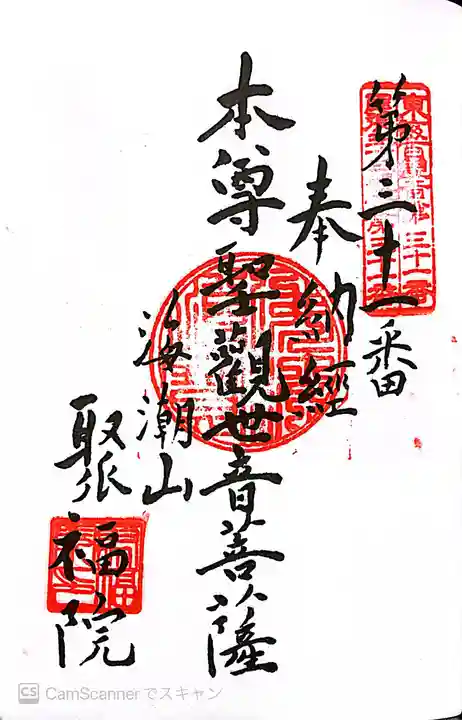 第三十一番
奉納經
本尊聖觀世音菩薩
海潮山
聚福院
CS CamScannerでスキャン